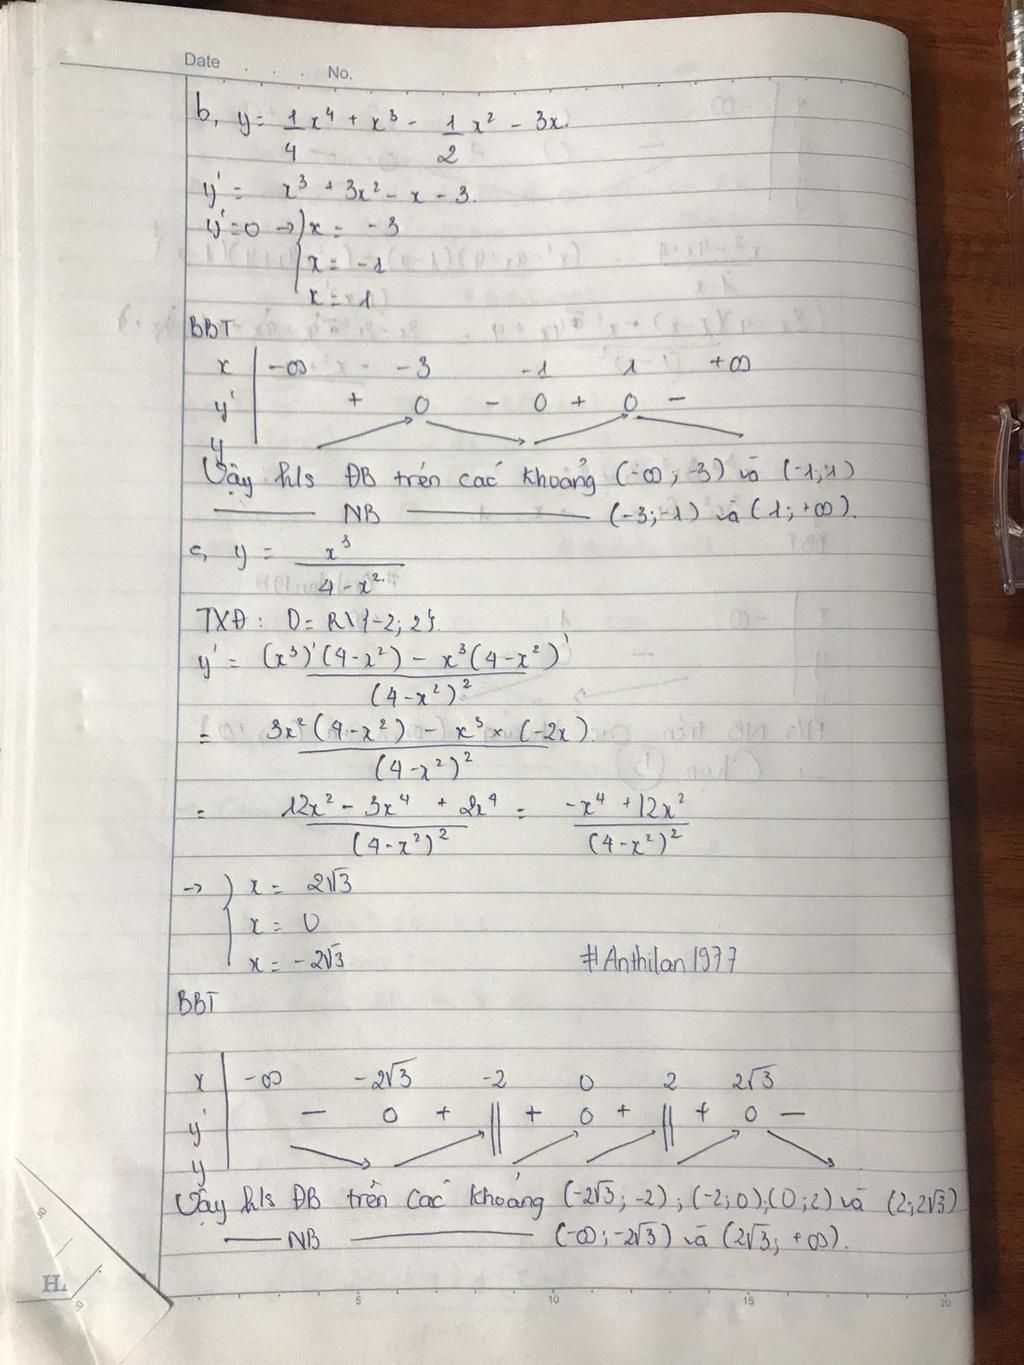 Date . . . No.
b, y = 1/4 x⁴ + x³ - 1/2 x² - 3x.
y' = x³ + 3x² - x - 3.
y' = 0 → { x = -3
x = -1
x = 1
BBT
x | -∞ -3 -1 1 +∞
y' + 0 - 0 + 0 -
y
Vậy h/s ĐB trên các khoảng (-∞; -3) và (-1; 1)
——— NB ——— (-3; -1) và (1; +∞).
c, y = x³ / (4 - x²)
TXĐ: D = R\{-2; 2}.
y' = ((x³)'(4-x²) - x³(4-x²)') / (4-x²)²
= (3x²(4-x²) - x³ × (-2x)) / (4-x²)²
= (12x² - 3x⁴ + 2x⁴) / (4-x²)² = (-x⁴ + 12x²) / (4-x²)²
→ { x = 2√3
x = 0
x = -2√3 #Anthilan1977
BBT
x | -∞ -2√3 -2 0 2 2√3
y' - 0 + || + 0 + || + 0 -
y
Vậy h/s ĐB trên các khoảng (-2√3; -2); (-2; 0); (0; 2) và (2; 2√3)
——— NB ——— (-∞; -2√3) và (2√3; +∞).
5 10 15 20